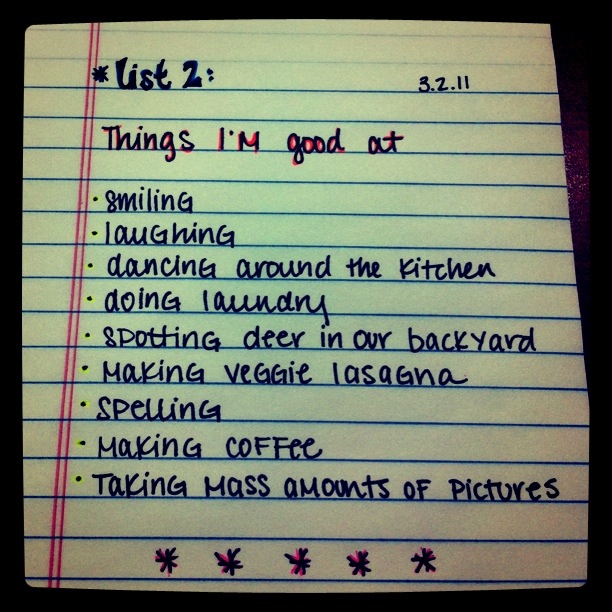 * List 2: 3.2.11
Things I'm good at
· smiling
· laughing
· dancing around the kitchen
· doing laundry
· spotting deer in our backyard
· making veggie lasagna
· spelling
· making coffee
· taking mass amounts of pictures
* * * * *